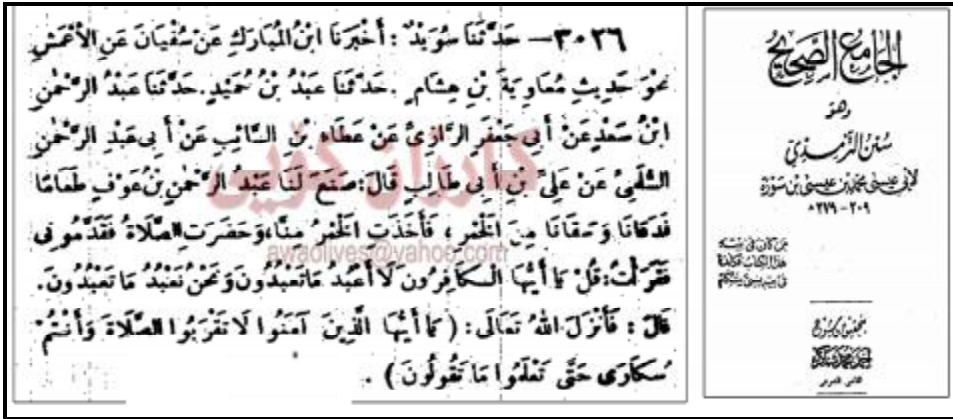 ٣٠٢٦ — حَدَّثَنَا سُوَيْدٌ : أَخْبَرَنَا ابْنُ الْمُبَارَكِ عَنْ سُفْيَانَ عَنِ الْأَعْمَشِ
نَحْوَ حَدِيثِ مُعَاوِيَةَ بْنِ هِشَامٍ . حَدَّثَنَا عَبْدُ بْنُ حُمَيْدٍ . حَدَّثَنَا عَبْدُ الرَّحْمٰنِ
ابْنُ سَعْدٍ عَنْ أَبِي جَعْفَرٍ الرَّازِيِّ عَنْ عَطَاءِ بْنِ السَّائِبِ عَنْ أَبِي عَبْدِ الرَّحْمٰنِ
السُّلَمِيِّ عَنْ عَلِيِّ بْنِ أَبِي طَالِبٍ قَالَ: صَنَعَ لَنَا عَبْدُ الرَّحْمٰنِ بْنُ عَوْفٍ طَعَامًا
فَدَعَانَا وَسَقَانَا مِنَ الْخَمْرِ ، فَأَخَذَتِ الْخَمْرُ مِنَّا، وَحَضَرَتِ الصَّلَاةُ فَقَدَّمُونِي
فَقَرَأْتُ: قُلْ يَا أَيُّهَا الْكَافِرُونَ لَا أَعْبُدُ مَا تَعْبُدُونَ وَنَحْنُ نَعْبُدُ مَا تَعْبُدُونَ.
قَالَ : فَأَنْزَلَ اللهُ تَعَالَى : ( يَا أَيُّهَا الَّذِينَ آمَنُوا لَا تَقْرَبُوا الصَّلَاةَ وَأَنْتُمْ
سُكَارَى حَتَّى تَعْلَمُوا مَا تَقُولُونَ ) .
كاروان كۆيى
awaolives@yahoo.com
الجامع الصحيح
وهو
سنن الترمذي
لأبي عيسى محمد بن عيسى بن سورة
٢٠٩ - ٢٧٩ هـ
من كان في بيته
هذا الكتاب فكأنما
في بيته نبي يتكلم
بتحقيق وشرح
أحمد محمد شاكر
القاضي الشرعي